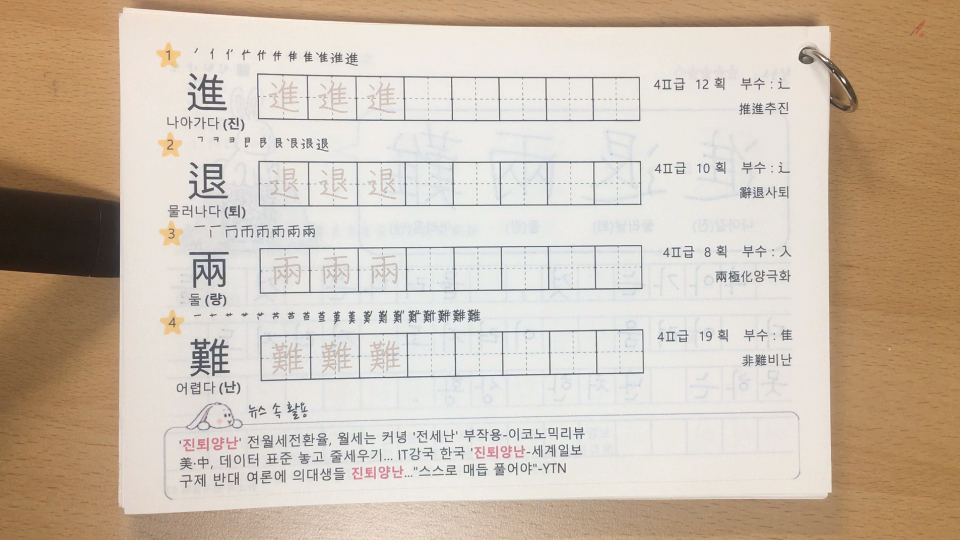 1 ノ 亻 亻 亻 亻 亻 隹 隹 隹 進 進 進
進 進 進 進 4Ⅱ급 12 획 부수 : 辶
나아가다 (진) 推進추진
2
退 退 退 退 4Ⅱ급 10 획 부수 : 辶
물러나다 (퇴) 辭退사퇴
3
兩 兩 兩 兩 4Ⅱ급 8 획 부수 : 入
둘 (량) 兩極化양극화
4
難 難 難 難 4Ⅱ급 19 획 부수 : 隹
어렵다 (난) 非難비난
뉴스 속 활용
'진퇴양난' 전월세전환율, 월세는 커녕 '전세난' 부작용-이코노믹리뷰
美·中, 데이터 표준 놓고 줄세우기... IT강국 한국 '진퇴양난-세계일보
구제 반대 여론에 의대생들 진퇴양난..."스스로 매듭 풀어야"-YTN